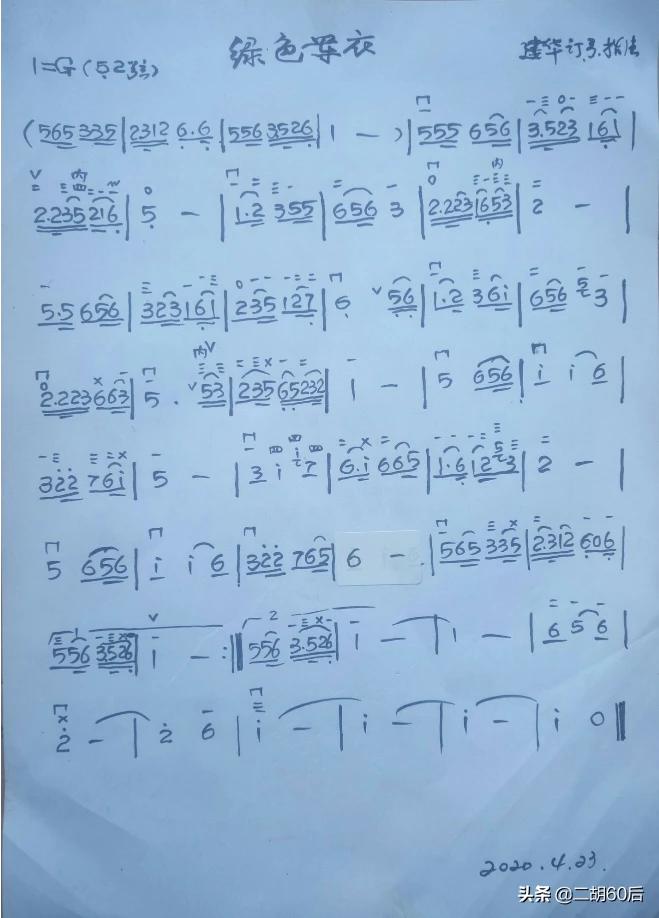 绿色军衣
1=G(5 2弦)
建华订弓.指法
(565 335|2312 6.6|556 3.526|1 —)|555 656|3.523 161|
2.235 216|5 —|1.2 355|656 3|2.223 1653|2 —|
5.5 656|323 161|235 127|6 56|1.2 361|656 5 3|
2.223 663|5. 53|235 65232|1 —|5 656|i i 6|
322 761|5 —|3 i i 7|6.i 665|1.6 12 5 3|2 —|
5 656|i i 6|322 765|6 —.|565 335|2.312 606|
1
556 3.526|i —:‖
2
556 3.526|i —|i —|6 5 6|
2 —|2 6|i —|i —|i —|i 0‖
2020.4.23.
头条 @二胡60后